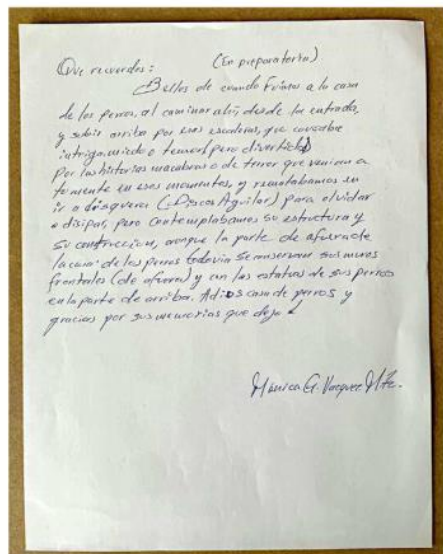 Que recuerdos: (En preparatoria)
Bellos de cuando Fuimos a la casa
de los perros, al caminar ahí, desde la entrada,
y subir arriba por esas escaleras, que
intriga, miedo o temor pero divertido
Por las historias macabras o de terror que venian a
tu mente en esos momentos, y rematabamos en
ir a disqueras (Discos Aguilar) para olvidar
o disipar, pero contemplabamos su estructura y
su contruccion, aunque la parte de afuera de
la casa de los perros todavia se conservan sus muros
frontales (de afuera) y con las estatuas de sus perros
en la parte de arriba. Adios casa de perros y
gracias por sus memorias que deja
Monica G. Vazquez Mtz.